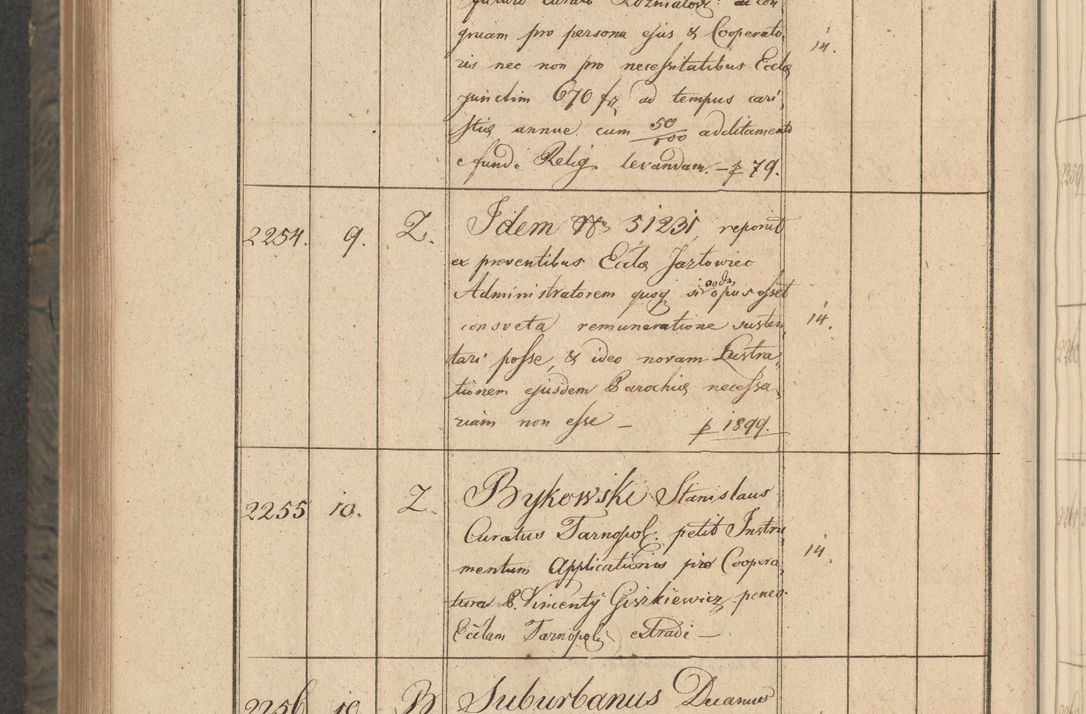 futuro Curato Rozniatov: ad con
gruam pro persona ejus & Cooperato
ris nec non pro necessitatibus Eccla
junctim 670 fr ad tempus cari,
stiæ annue cum 50/100 additamento
e fundo Relig. levandam. – p 79.
14.
2254. 9. Z. Idem Nr 51231 reponit
ex proventibus Eccla Jazłowiec
Administratorem quoq si opus esset
consveta remuneratione susten,
14.
tari posse, & ideo novam Lustra,
tionem ejusdem Parochiæ necessa,
riam non esse – p 1899.
2255 10. Z. Bykowski Stanislaus
Curatus Tarnopol: petit Instru,
mentum Applicationis pro Coopera,
14.
tura P. Vincenty Giszkiewicz penes
Ecclam Tarnopol: extradi –
2256 10 B Suburbanus Decanus